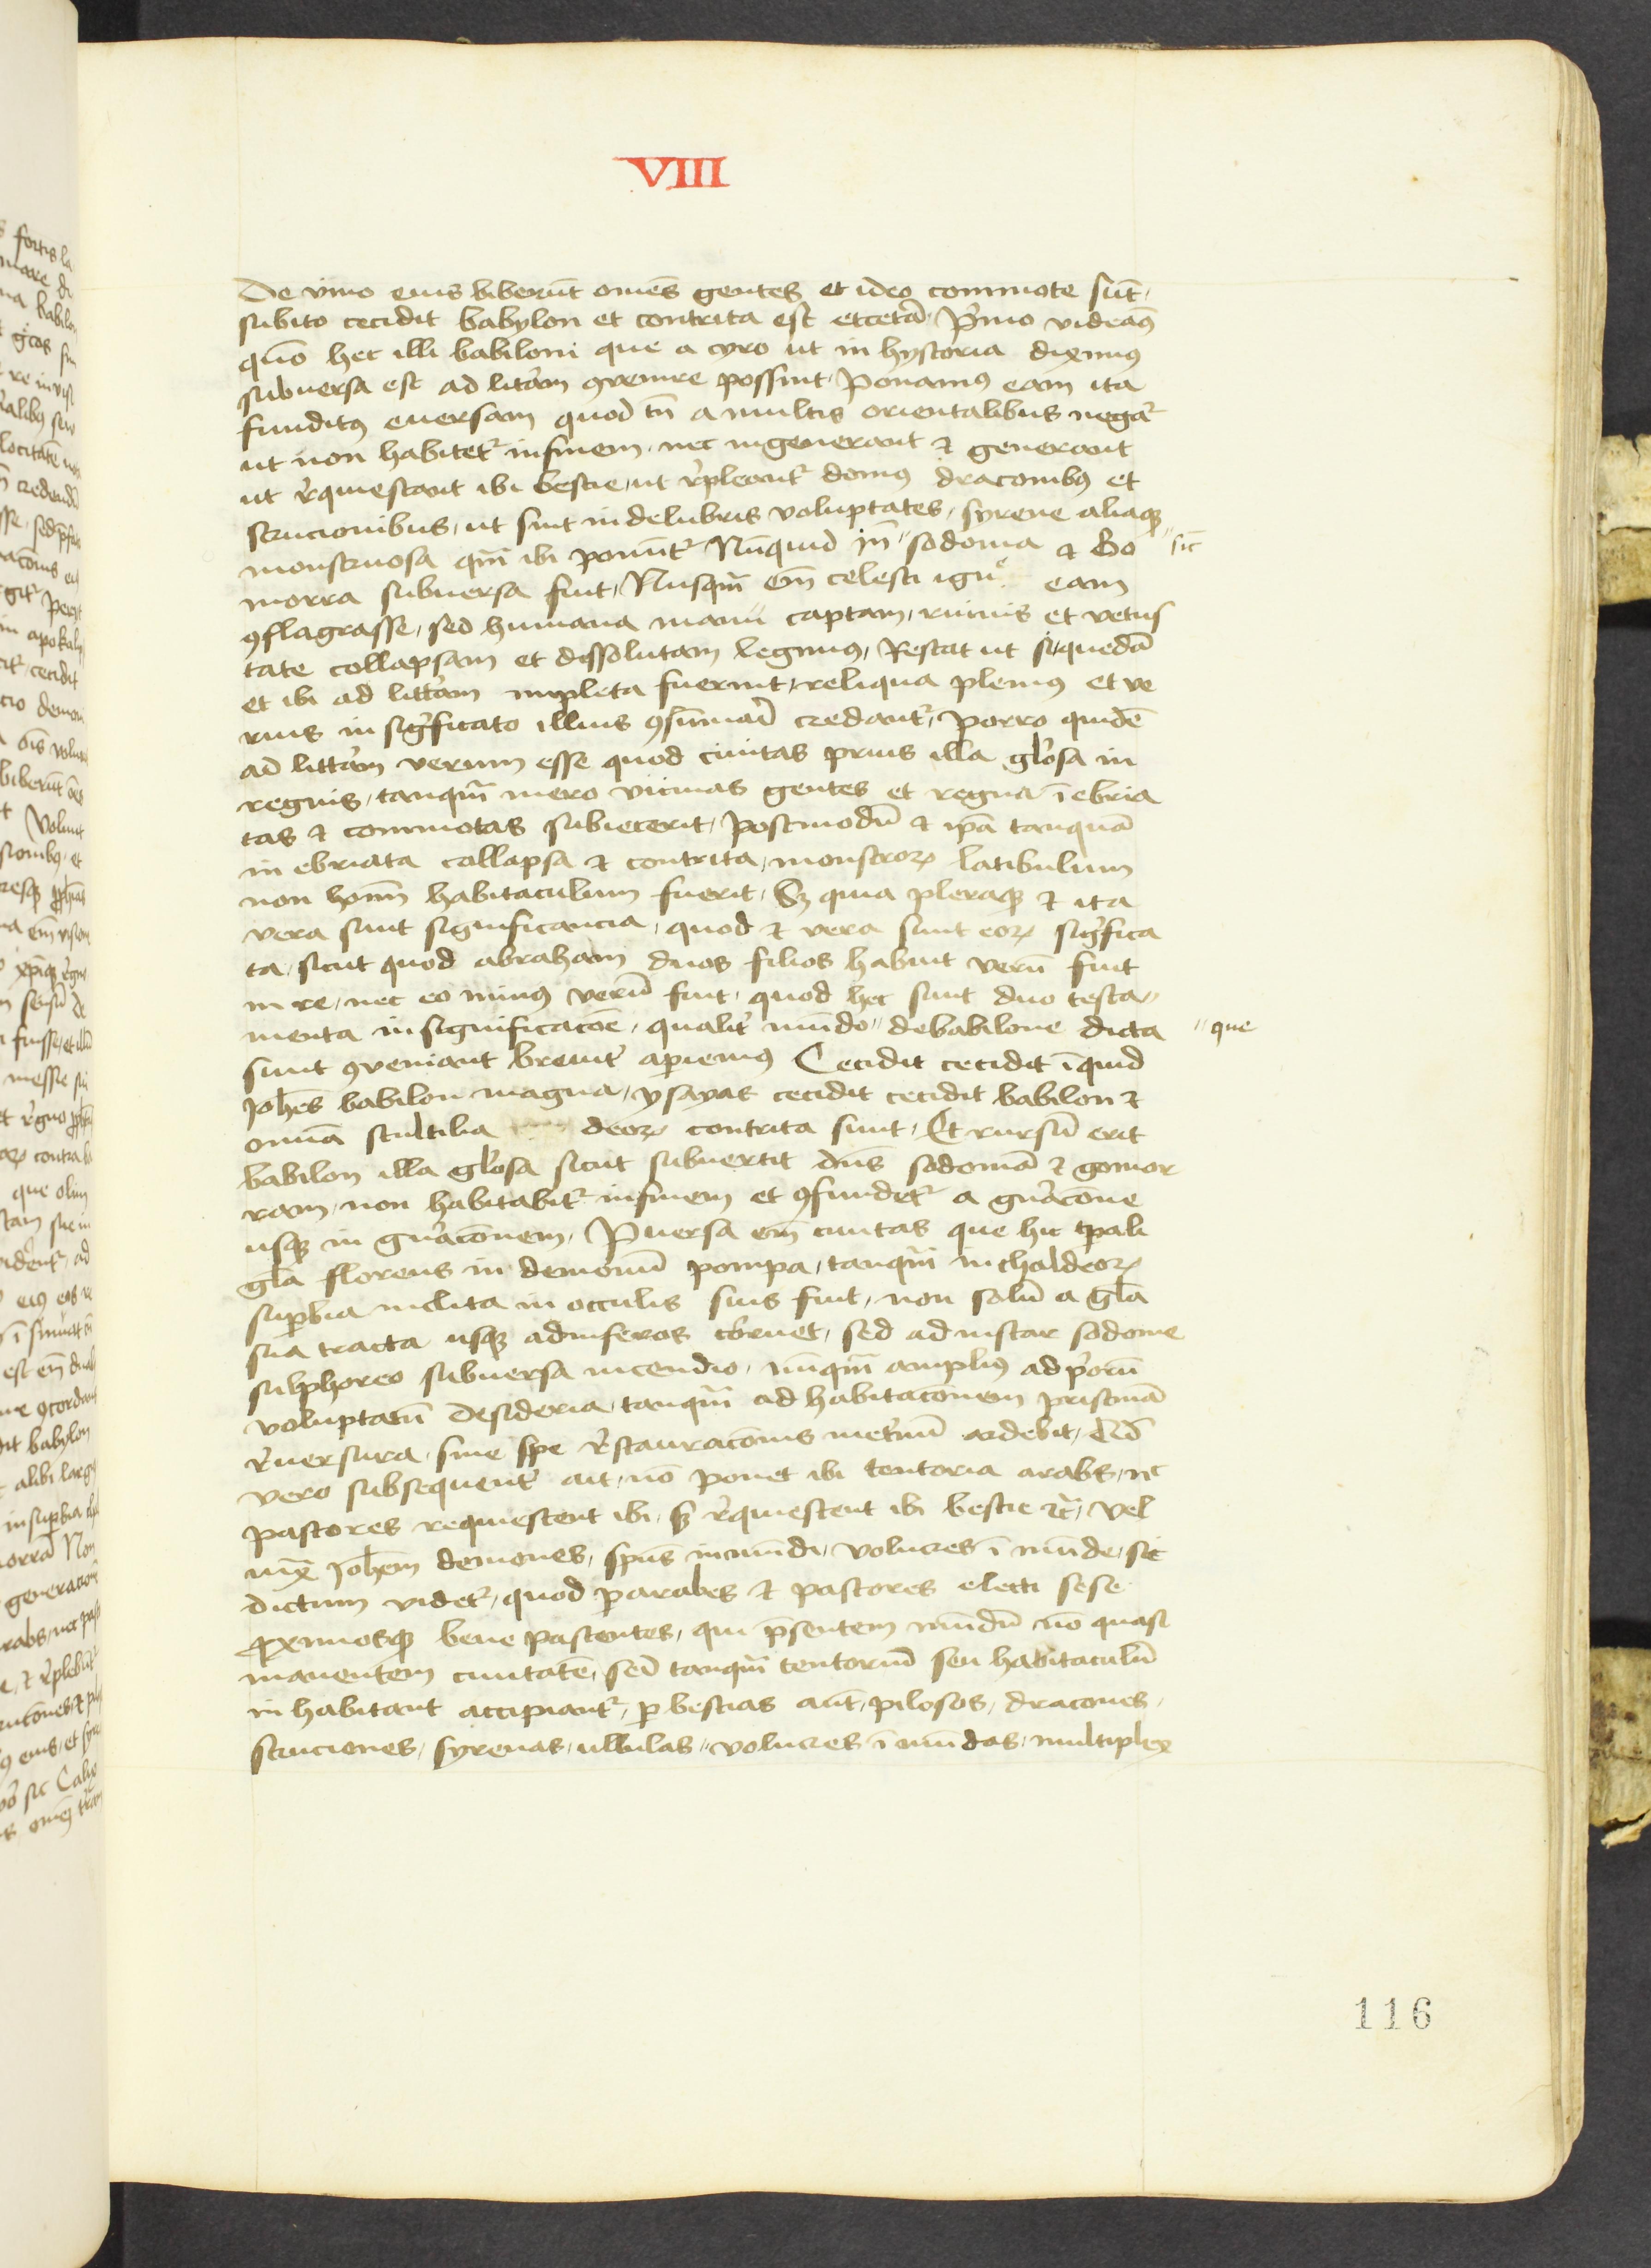 VIII
De vino eius biberūt omēs gentes et ideo commote sūt,
subito cecidit babylon et contrita est etceta᷑, Pͥmo videaꝫ
quō hec illi babiloni que a cyro ut in hystoria diximꝰ
subuersa est ad litͣam ꝯuenire possint, Ponamꝰ eam ita
funditꝰ euersam quod tñ a multis orientalibus negat᷑
ut non habitet᷑ infinem, nec ingenerant ⁊ generant
ut r̾quiescant ibi bestie, ut r̾pleant᷑ domꝰ draconibꝰ et
strucionibus, ut sint indelubris voluptates, syrene aliaqꝫ
monstruosa qm̄ ibi ponūt᷑ Nūquid iñ〃sodoma ⁊ Go 〃sic
morra subuersa fuit, Nusqm̄ em̄ celesti igne eam
ꝯflagrasse, sed humana manu captam, ruinis et vetus
tate collapsam et dissolutam legimꝰ, Restat ut si quedā
et ibi ad litt̾am impleta fuerint, reliqua pleniꝰ et ve
rius in sig̾ficato illius ꝯsūmari credant᷑, Porro quidē
ad litt̾am verum esse quod ciuitas prius illa gl̾osa in
regnis, tanqm̄ mero vicinas gentes et regna īebria
tas ⁊ commotas subiecerit, Postmodū ⁊ ip̄a tanquā
in ebriata collapsa ⁊ contrita, monstroꝝ latibulum
non hoīm habitaculum fuerit, Sꝫ quia pleraqꝫ ⁊ ita
vera sunt significancia, quod ⁊ vera sunt eoꝝ sig̾fica
ta, sicut quod abraham duos filios habuit verū fuit
in re, nec eo minꝰ verū fuit, quod hec sunt duo testa〃
menta in significacōe, qualit̾ mūdo〃debabilone dicta 〃que
sunt ꝯueniant breuit̾ apiemꝰ Cecidit cecidit īquid
Joh̄es babilon magna, ysayas cecidit cecidit babilon ⁊
omīa scultilia deoꝝ contrita sunt, Et rursū erit
babilon illa gl̾osa sicut subuertit dn̄s sodomā ⁊ gomor
ram, non habitabit᷑ infinem et ꝯfundet᷑ a gn̾acōne
usqꝫ in gn̾acōnem, Puersa em̄ ciuitas que hic tp̄ali
gl̄a florens in demonū pompa, tanqm̄ in chaldeoꝝ
sup̱bia inclita in occulis suis fuit, non solū a gl̄a
sua tracta usqꝫ adinferos corruet, sed ad instar sodome
sulphoreo subuersa incendio, nūqm̄ ampliꝰ ad pͥorū
voluptatū desideria, tanqm̄ ad habitacōnem pristinā
r̾uersura, sine spe r̾stauracōnis inet̾nū ardebit,
vero subsequent̾ ait, nō ponet ibi tentoria arabs, nͨ
pastores requiescent ibi, sꝫ r̾quiescent ibi bestie ⁊c̄, vel
iux̄ Joh̄em demones, sp̄us inmūdi, volucres ī mūde, sic
dictum videt᷑, quod ꝑarabes ⁊ pastores electi sese
ꝓximosqꝫ bene pascentes, qui p̄sentem mūdū nō quasi
manentem ciuitatē, sed tanqm̄ tentoriū seu habitaculū
in habitant accipiant᷑, ꝑ bestias aūt, pilosos, dracones,
struciones, syrenas, ullulas, volucres ī mūdas, multiplex
116